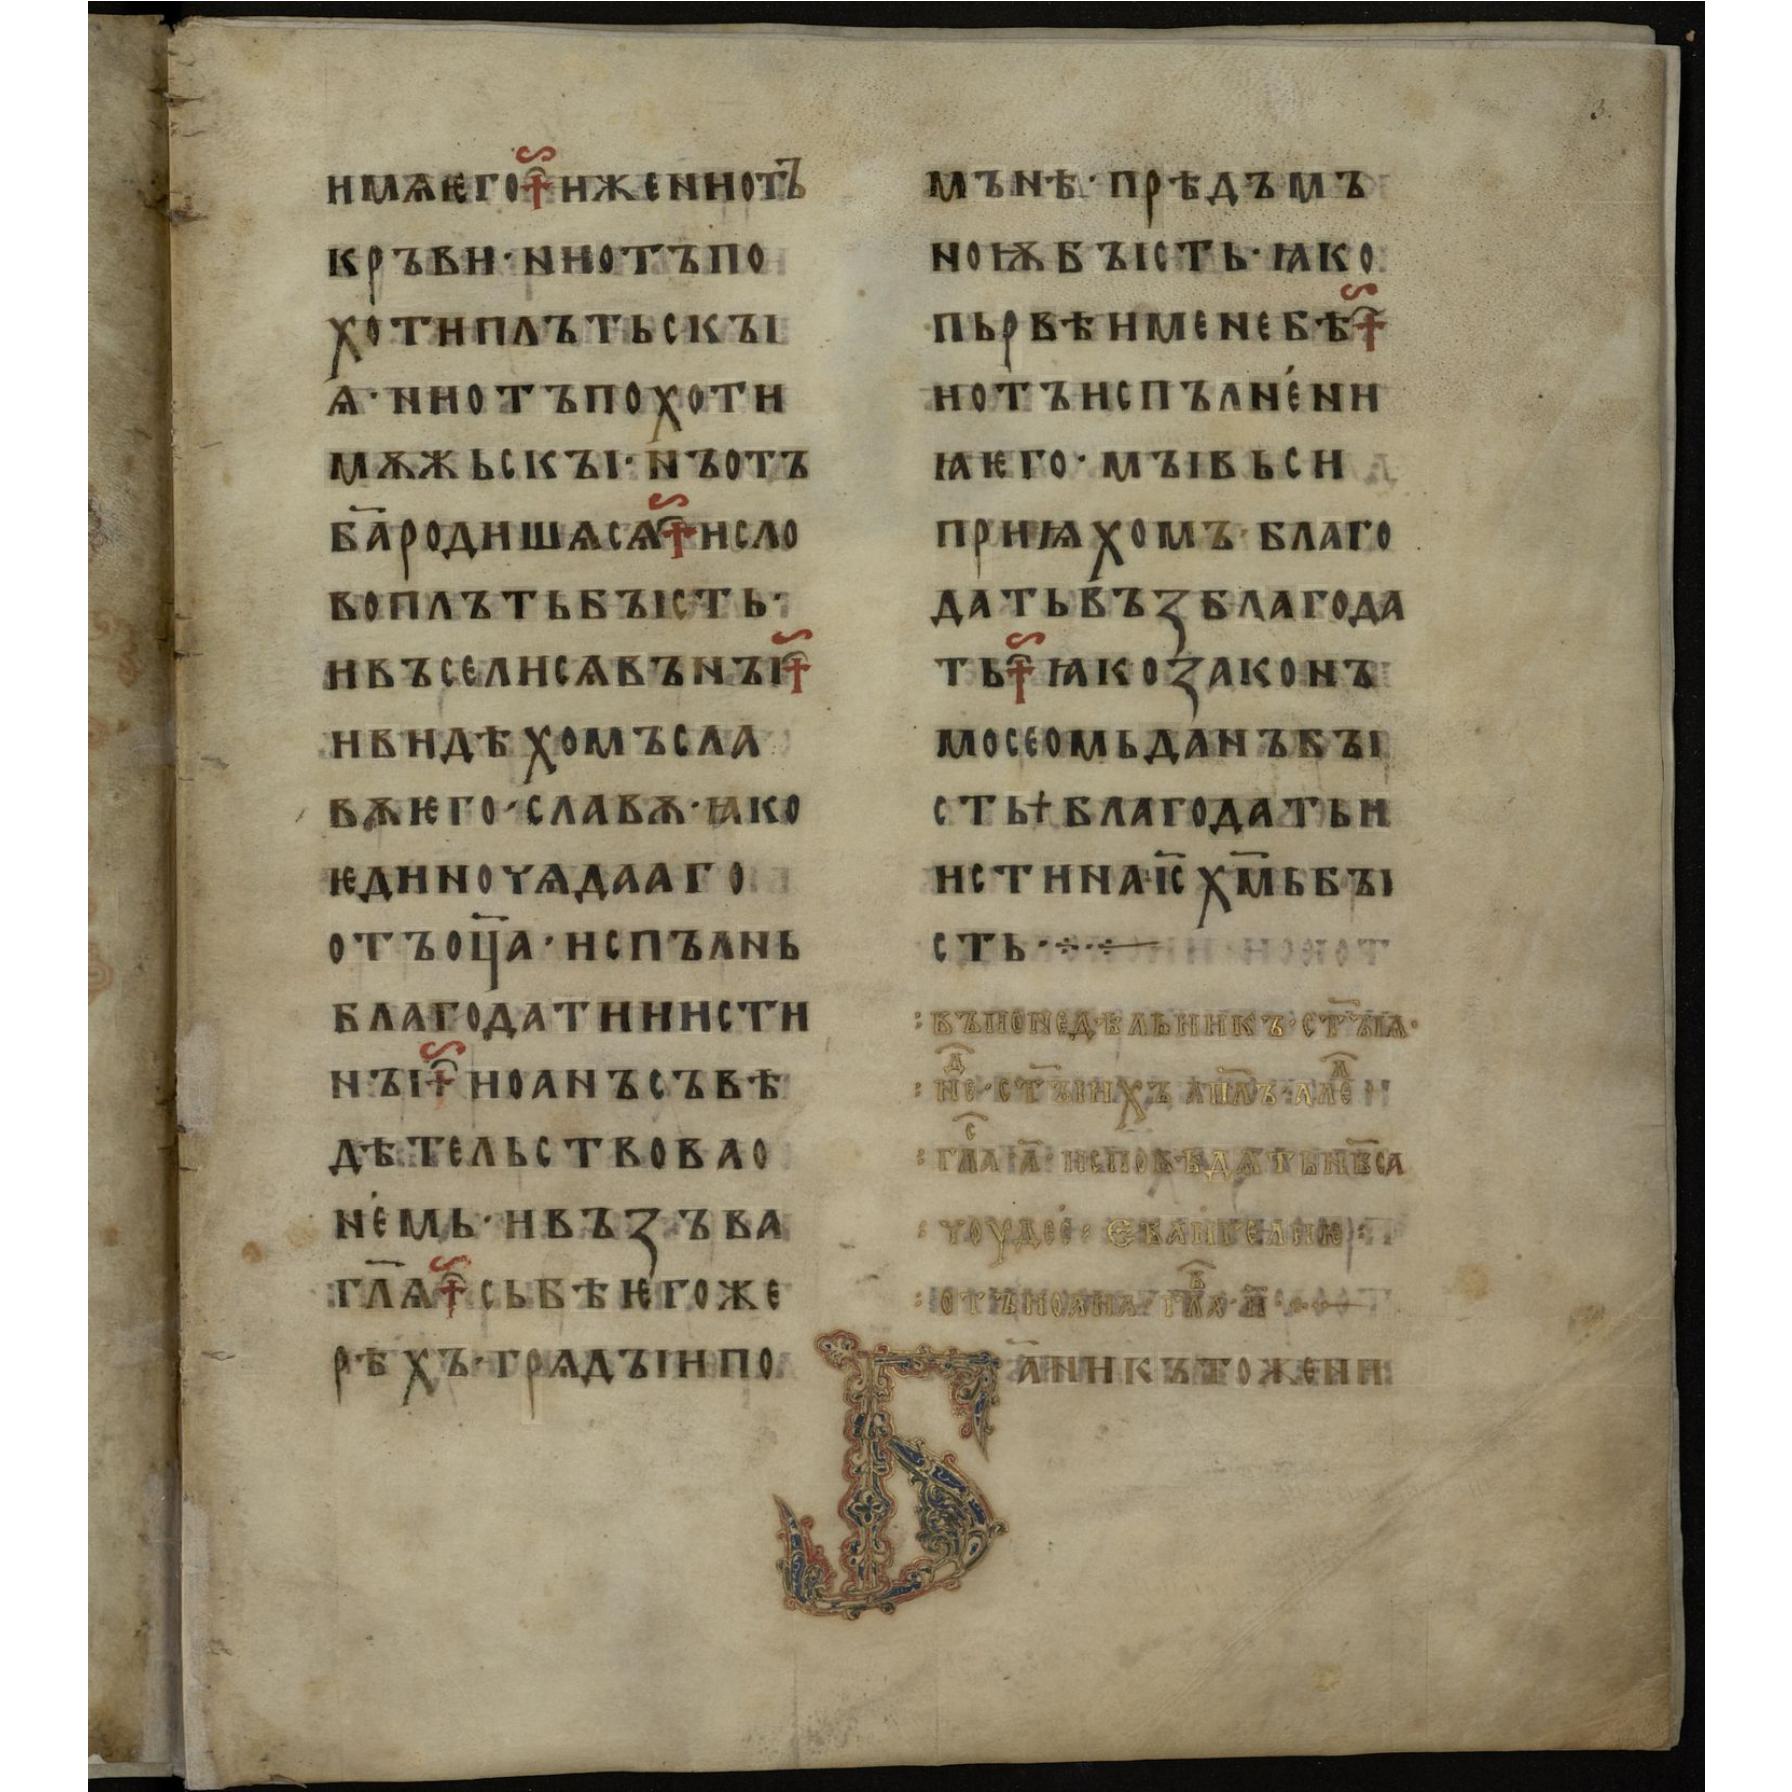 3.
имѧѥго☦иженнотъ
кръви·ннотъпо
хотиплътьскꙑ
ꙗ·ннотъпохоти
мѫжьскꙑ·нъотъ
ба҃родишѧсѧ☦исло
воплътьбꙑсть·
ивъселисѧвънꙑ☦
ивидѣхомъсла
вѫѥго·славѫ·ꙗко
ѥдиночѧдааго
отъоц҃а·испълнь
благодатииисти
нꙑ☦иоанъсъвѣ
дѣтельствовао
немь·ивъꙁъва
гл҃ѧ☦сьбѣѥгоже
рѣхъ·грѧдꙑипо
мънѣ·прѣдъмъ
ноѭбꙑсть·ꙗко
пьрвѣименебѣ☦
иотъиспълнени
ꙗѥго·мꙑвьси
приѩхомъ·благо
датьвъꙁблагода
ть☦ꙗкоꙁаконъ
мосеомьданъбꙑ
сть+благодатьи
истинаіс҃хм҃ьбꙑ
сть·÷·
:въпонедѣльникъ·ст҃ꙑꙗ·
:нед·ст҃ꙑихъап҃лъ·алел
:глас·а҃·исповѣдѧтьнб҃са
:чоудеса:евангелиѥ:
:отъиоана·глав·и҃·
Ба҃никътожени